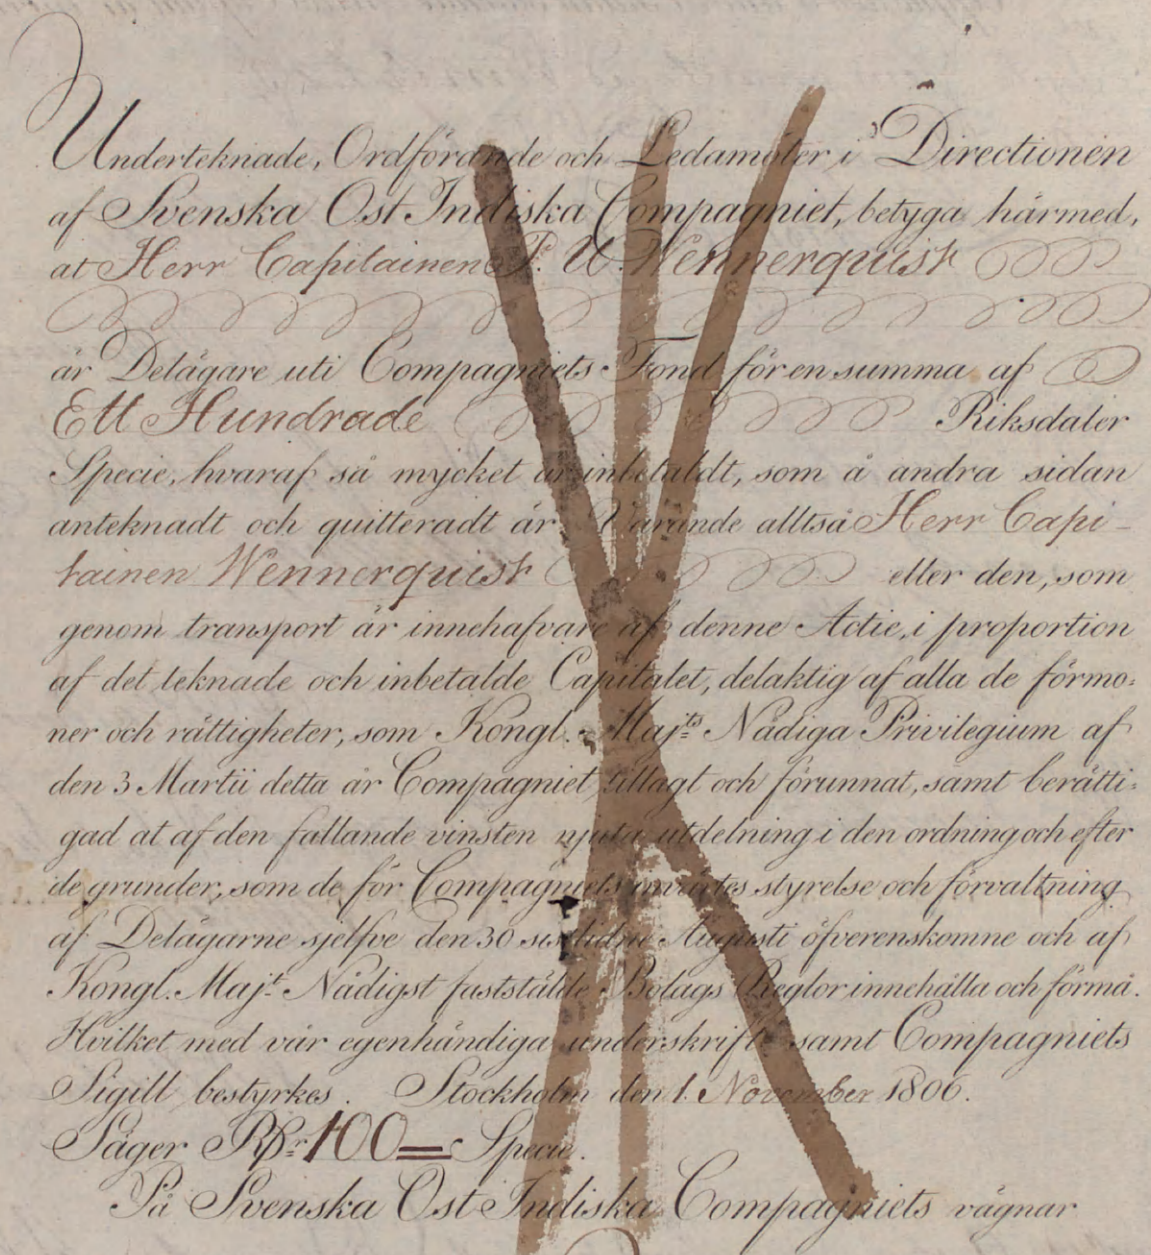 Underteknade, Ordförande och Ledamöter i Directionen
af Svenska Ost Indiska Compagniet, betyga härmed,
at Herr Capitainen P. U. Wennerquist
är Delägare uti Compagniets Fond för en summa af
Ett Hundrade Riksdaler
Specie, hvaraf så mycket är inbetaldt, som å andra sidan
anteknadt och quitteradt är. Varande alltså Herr Capi-
tainen Wennerquist eller den, som
genom transport är innehafvare af denne Actie, i proportion
af det teknade och inbetalde Capitalet, delaktig af alla de förmo:
ner och rättigheter, som Kongl. Maj:ts Nådiga Privilegium af
den 3 Martii detta år Compagniet tillagt och förunnat, samt berätti:
gad at af den fallande vinsten njuta utdelning i den ordning och efter
de grunder, som de för Compagniets invärtes styrelse och förvaltning
af Delägarne sjelfve den 30 sistledne Augusti öfverenskomne och af
Kongl. Maj:t Nådigst faststälde Bolags Reglor innehålla och förmå.
Hvilket med vår egenhändiga underskrift samt Compagniets
Sigill bestyrkes. Stockholm den 1. November 1806.
Säger R:dr 100 = Specie.
På Svenska Ost Indiska Compagniets vägnar